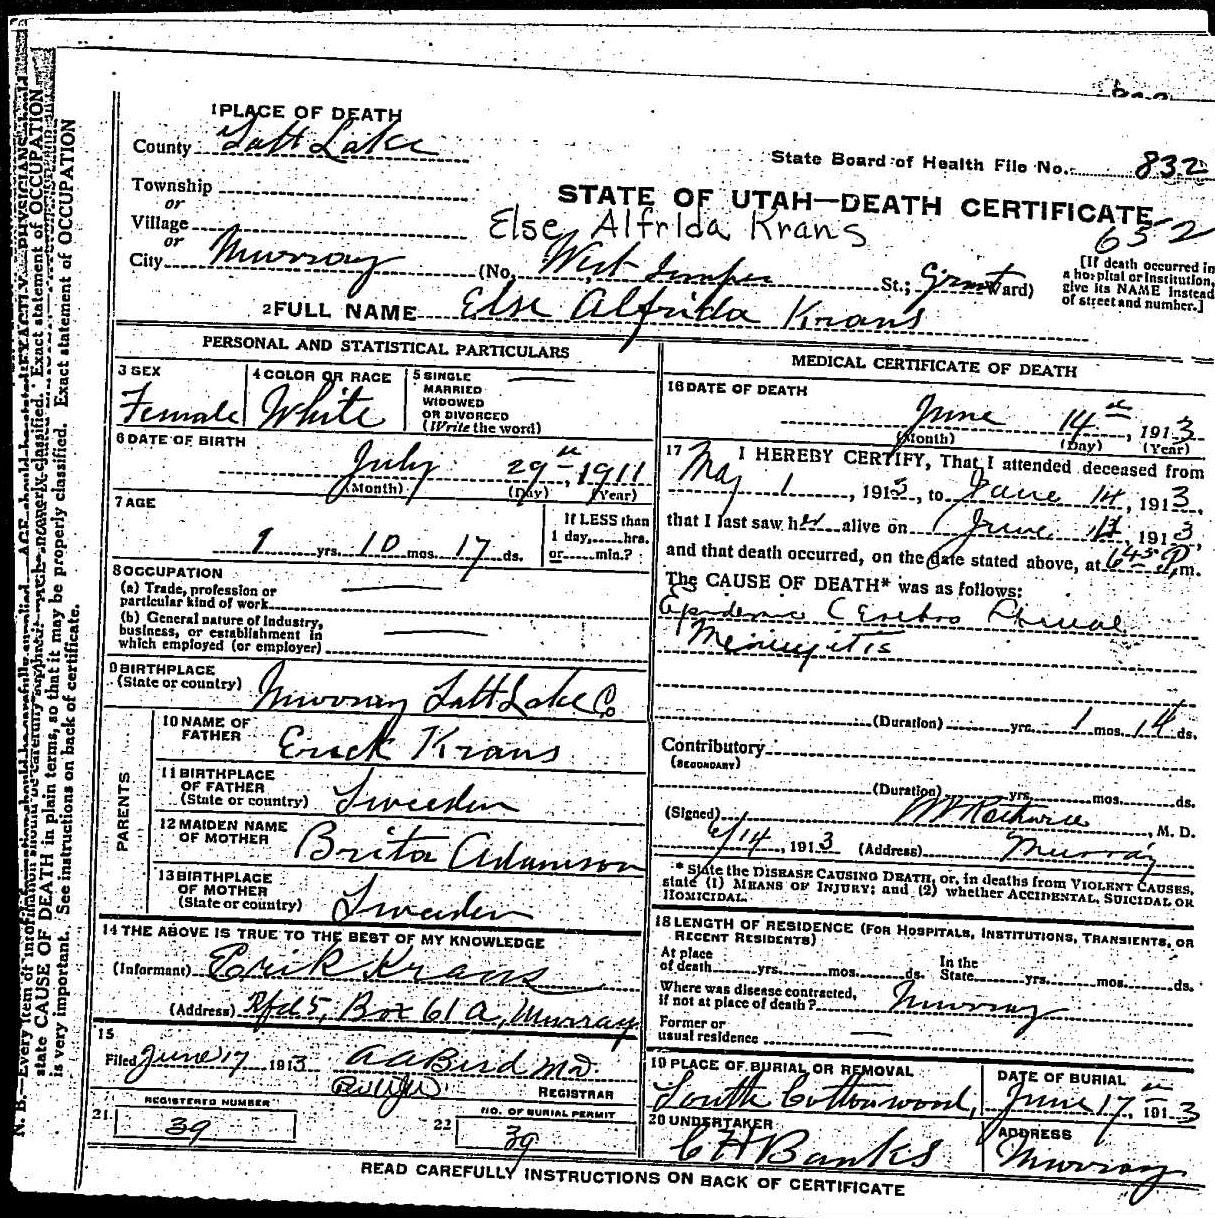 1 PLACE OF DEATH
County Salt Lake
State Board of Health File No. 832
Township
or
STATE OF UTAH—DEATH CERTIFICATE
Village
Else Alfrida Krans
652
or
City Murray (No. West St.; Grant Ward)
[If death occurred in
a hospital or institution,
give its NAME instead
of street and number.]
2 FULL NAME Else Alfrida Krans
PERSONAL AND STATISTICAL PARTICULARS
3 SEX
Female
4 COLOR OR RACE
White
5 SINGLE
MARRIED
WIDOWED
OR DIVORCED
(Write the word)
6 DATE OF BIRTH
July 29th, 1911
(Month) (Day) (Year)
7 AGE
1 yrs. 10 mos. 17 ds.
If LESS than
1 day,......hrs.
or......min.?
8 OCCUPATION
(a) Trade, profession or
particular kind of work
(b) General nature of Industry,
business, or establishment in
which employed (or employer)
9 BIRTHPLACE
(State or country) Murray Salt Lake Co
PARENTS
10 NAME OF
FATHER Erick Krans
11 BIRTHPLACE
OF FATHER
(State or country) Sweeden
12 MAIDEN NAME
OF MOTHER Brita Adamson
13 BIRTHPLACE
OF MOTHER
(State or country) Sweeden
14 THE ABOVE IS TRUE TO THE BEST OF MY KNOWLEDGE
(Informant) Erik Krans
(Address) Rfd 5, Box 61 a, Murray
15
Filed June 17 1913 A A Bird M D.
REGISTRAR
REGISTERED NUMBER
21 39
NO. OF BURIAL PERMIT
22 39
MEDICAL CERTIFICATE OF DEATH
16 DATE OF DEATH
June 14th, 1913
(Month) (Day) (Year)
17 I HEREBY CERTIFY, That I attended deceased from
May 1, 1913, to June 14, 1913,
that I last saw her alive on June 1913,
and that death occurred, on the date stated above, at 6 45 P.m.
The CAUSE OF DEATH* was as follows:
Epidemic Cerebro Spinal
Meningitis
(Duration) yrs. 1 mos. 14 ds.
Contributory
(SECONDARY)
(Duration) yrs. mos. ds.
(Signed) , M. D.
6/14, 1913 (Address) Murray
* State the DISEASE CAUSING DEATH, or, in deaths from VIOLENT CAUSES,
state (1) MEANS OF INJURY; and (2) whether ACCIDENTAL, SUICIDAL OR
HOMICIDAL.
18 LENGTH OF RESIDENCE (FOR HOSPITALS, INSTITUTIONS, TRANSIENTS, OR
RECENT RESIDENTS)
At place
of death......yrs.......mos.......ds.
In the
State......yrs.......mos.......ds.
Where was disease contracted,
if not at place of death? Murray
Former or
usual residence
19 PLACE OF BURIAL OR REMOVAL
South Cottonwood,
DATE OF BURIAL
June 17th, 1913
20 UNDERTAKER
C H Banks
ADDRESS
Murray
READ CAREFULLY INSTRUCTIONS ON BACK OF CERTIFICATE
state CAUSE OF DEATH in plain terms, so that it may be properly classified. Exact statement of OCCUPATION
is very important. See instructions on back of certificate.